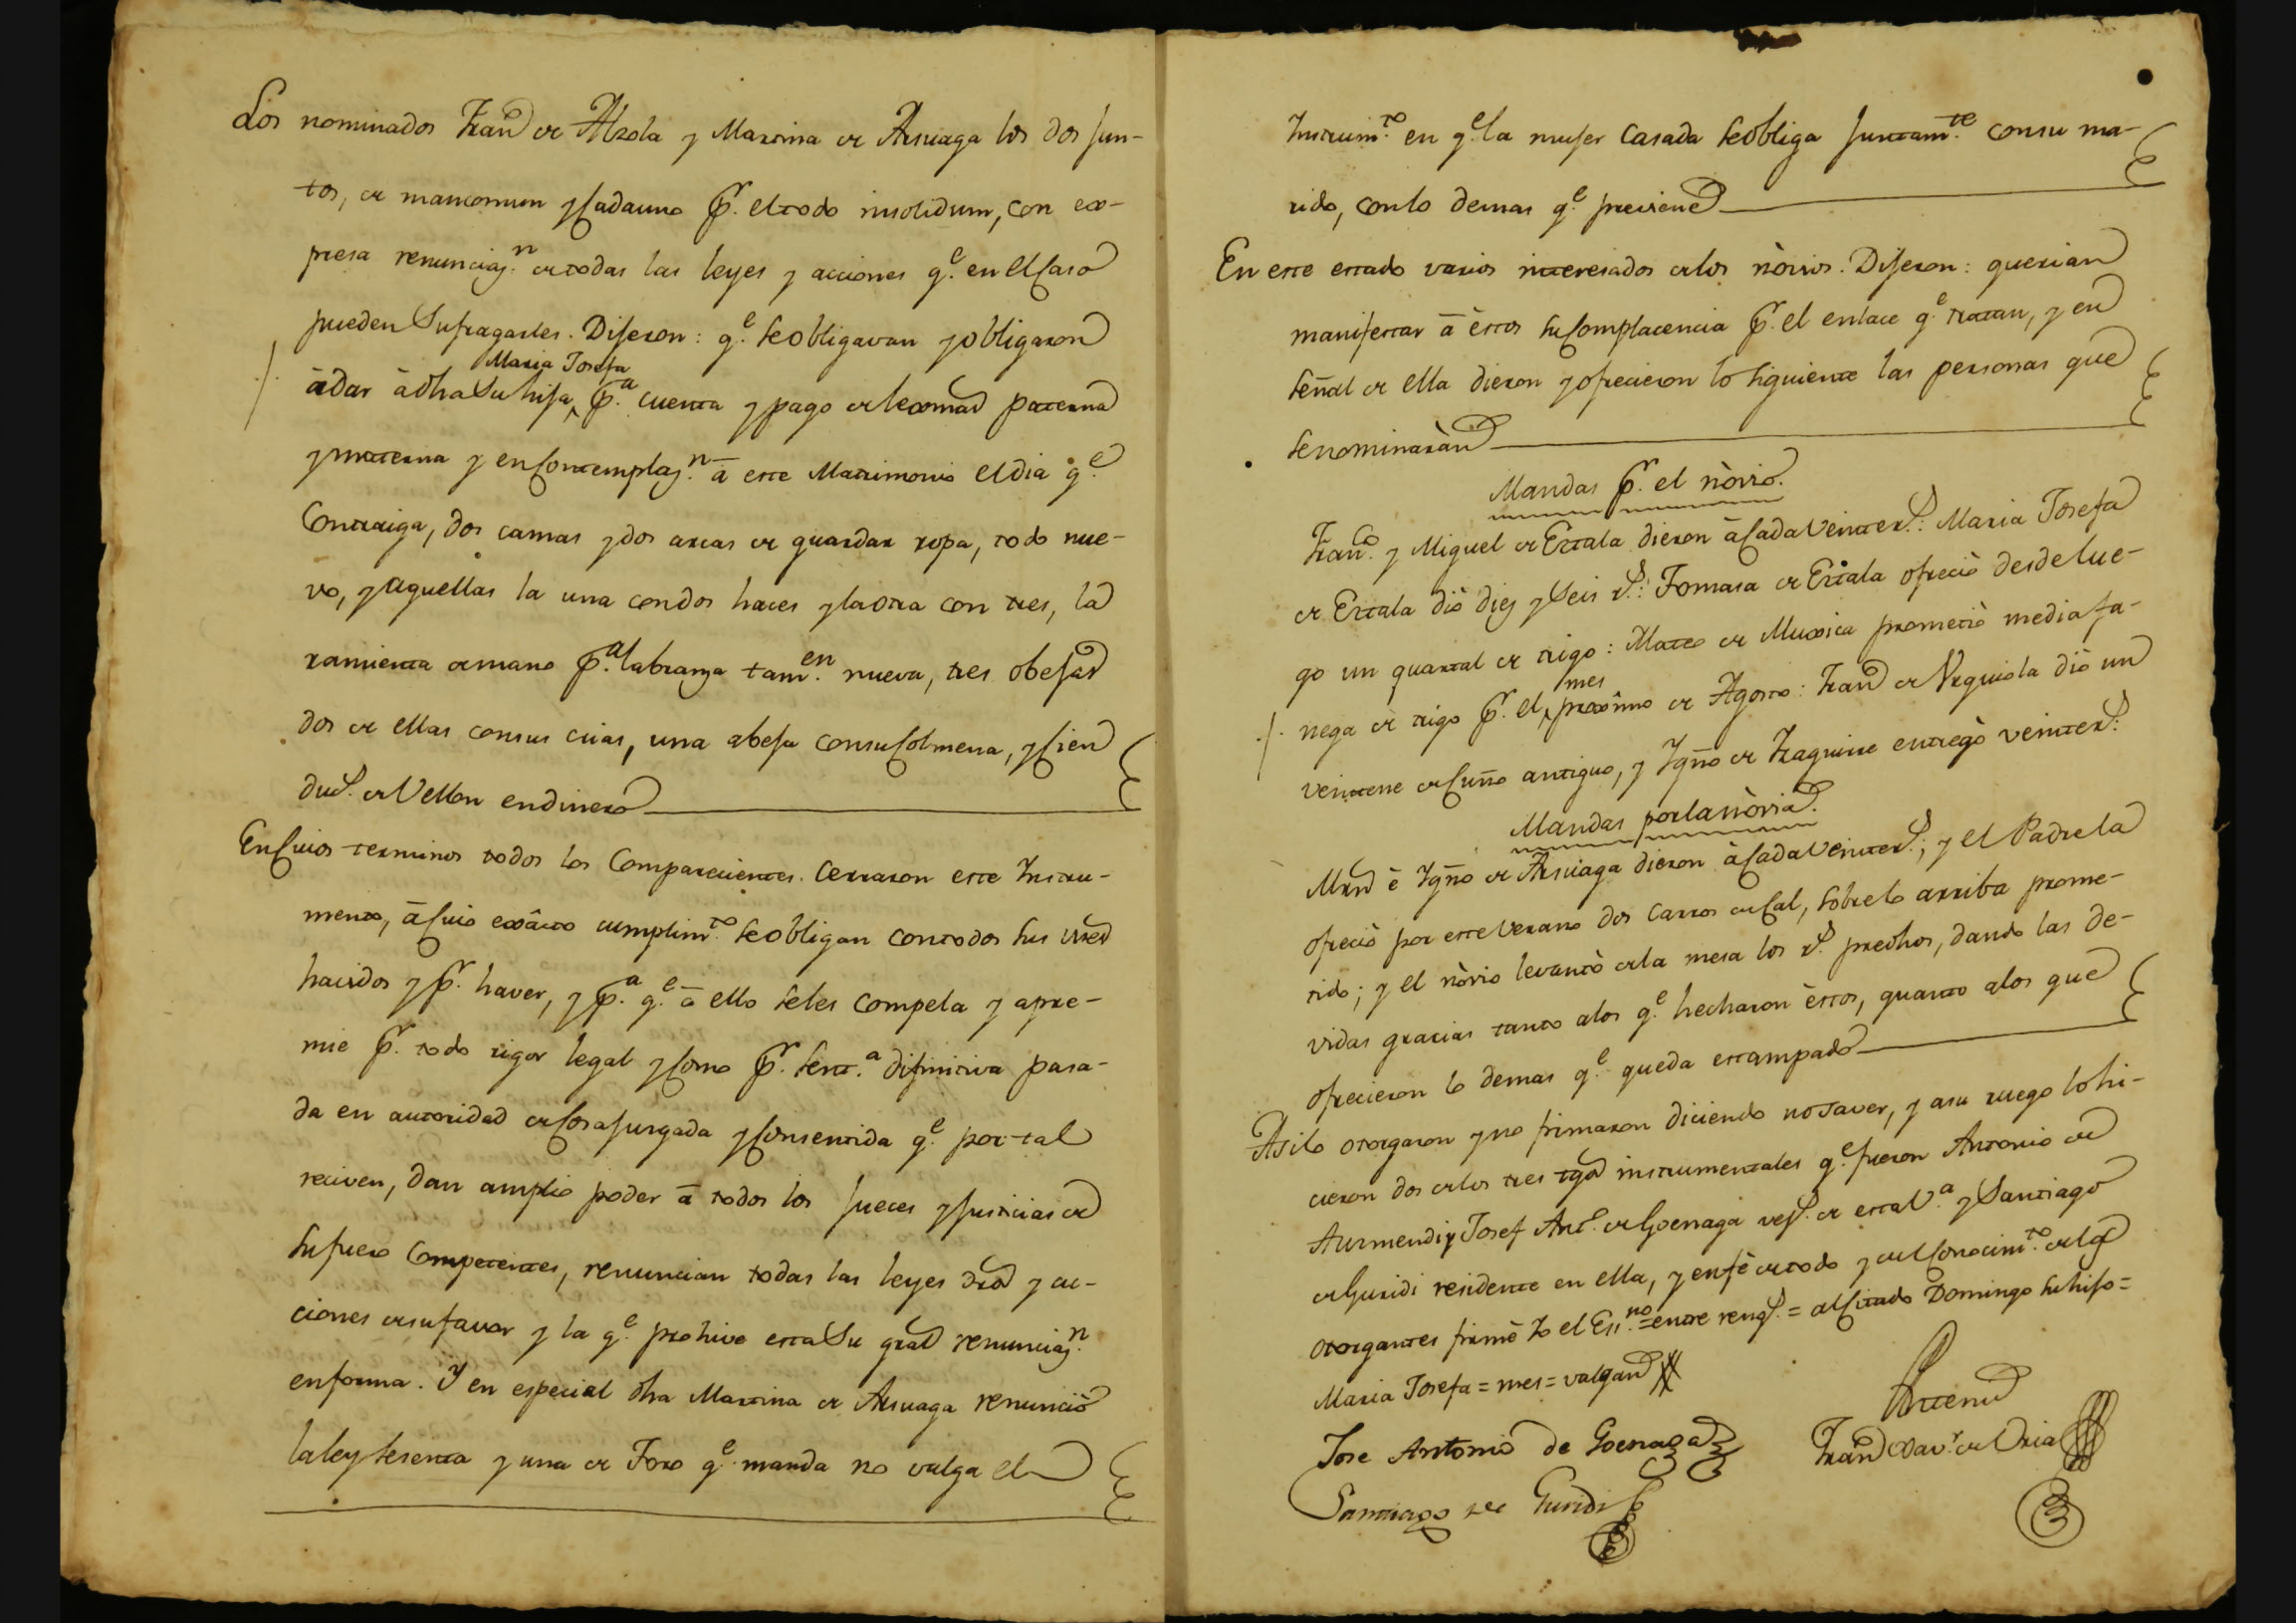 Los nominados Fran.co de Alzola y Martina de Arsuaga los dos jun-
tos, de mancomun y cada uno p.r el todo insolidum, con ex-
presa renunciaz.n de todas las leyes y acciones q.e en el caso
pueden sufragarles. Dijeron: q.e se obligavan y obligaron
Maria Josefa
à dar à dha su hija, p.a cuenta y pago de lexmas paterna
y materna y en contemplaz.n à este Matrimonio el dia q.e
Contraiga, dos camas y dos arcas de guardar ropa, todo nue-
vo, y aquellas la una con dos haces y la otra con tres, la
ramienta de mano p.a labranza tam.en nueva, tres obejas
dos de ellas con sus crias, una abeja con su colmena, y cien
duc.s de Vellon en dinero
En cuios terminos todos los Comparecientes cerraron este Instru-
mento, à cuio exâcto cumplim.to se obligan con todos sus vnes
havidos y p.r haver, y p.a q.e à ello se les compela y apre-
mie p.r todo rigor legal y como p.r sent.a difinitiva pasa-
da en autoridad de cosa jusgada y consentida q.e por tal
reciven, dan amplio poder à todos los jueces y justicias de
su fuero Competentes, renuncian todas las leyes dros y ac-
ciones de su favor y la q.e prohive esta su gral renunciaz.n
en forma. Y en especial dha Martina de Arsuaga renunciò
la ley sesenta y una de Toro q.e manda no valga el
Instrum.to en q.e la mujer casada se obliga juntam.te con su ma-
rido, con lo demas q.e previene
En este estado varios interesados de los nòvios. Dijeron: querian
manifestar à èstos su complacencia p.r el enlace q.e tratan, y en
señal de ella dieron y ofrecieron lo siguiente las personas que
se nominaràn
Mandas p.r el nòvio.
Fran.co y Miguel de Estala dieron à cada veinte r.s: Maria Josefa
de Estala diò diez y seis r.s: Tomasa de Estala ofreciò desde lue-
go un quartal de trigo: Mateo de Muxica prometiò media fa-
mes
nega de trigo p.r el, proxîmo de Agosto: Fran.co de Urquiola diò un
veintene de cuño antiguo, y Ygno de Yraguirre entregò veinte r.s
Mandas por la nòvia.
Mrn è Ygno de Arsuaga dieron à cada veinte r.s; y el Padre la
ofreciò por este verano dos carros de cal, sobre lo arriba prome-
tido; y el nòvio levantò de la mesa los r.s predhos, dando las de-
vidas gracias tanto a los q.e hecharon èstos, quanto a los que
ofrecieron lo demas q.e queda estampado
Asi lo otorgaron y no firmaron diciendo no saver, y a su ruego lo hi-
cieron dos de los tres tgos instrumentales q.e fueron Antonio de
Aurmendi y Josef Ant.o de Goenaga vez.s de esta V.a y Santiago
de Guridi residente en ella, y en fè de todo y del conocim.to de los
otorgantes firmè Yo el Ess.no = entre reng.s = al citado Domingo su hijo =
Maria Josefa = mes = valgan
Ante mi
Jose Antonio de Goenaga
Fran.co Xav.r de Oria
Santiago de Guridi